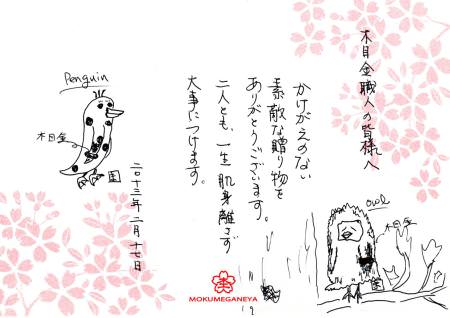 木目金職人の皆様へ
かけがえのない
素敵な贈り物を
ありがとうございます。
二人とも、一生肌身離さず
大事につけます。
二〇十三年二月十七日
Penguin
木目金
owl
木目金
MOKUMEGANEYA